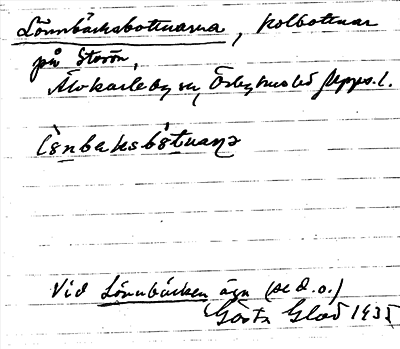 Lönnbäcksbottnarna, kolbottnar
på Storön,
Älvkarleby sn, Örbyhus hd Upps. l.
lö̀nbaksbót̄naṇa
Vid Lönnbäcken äga (se d. o.)
Gösta Glad 1935